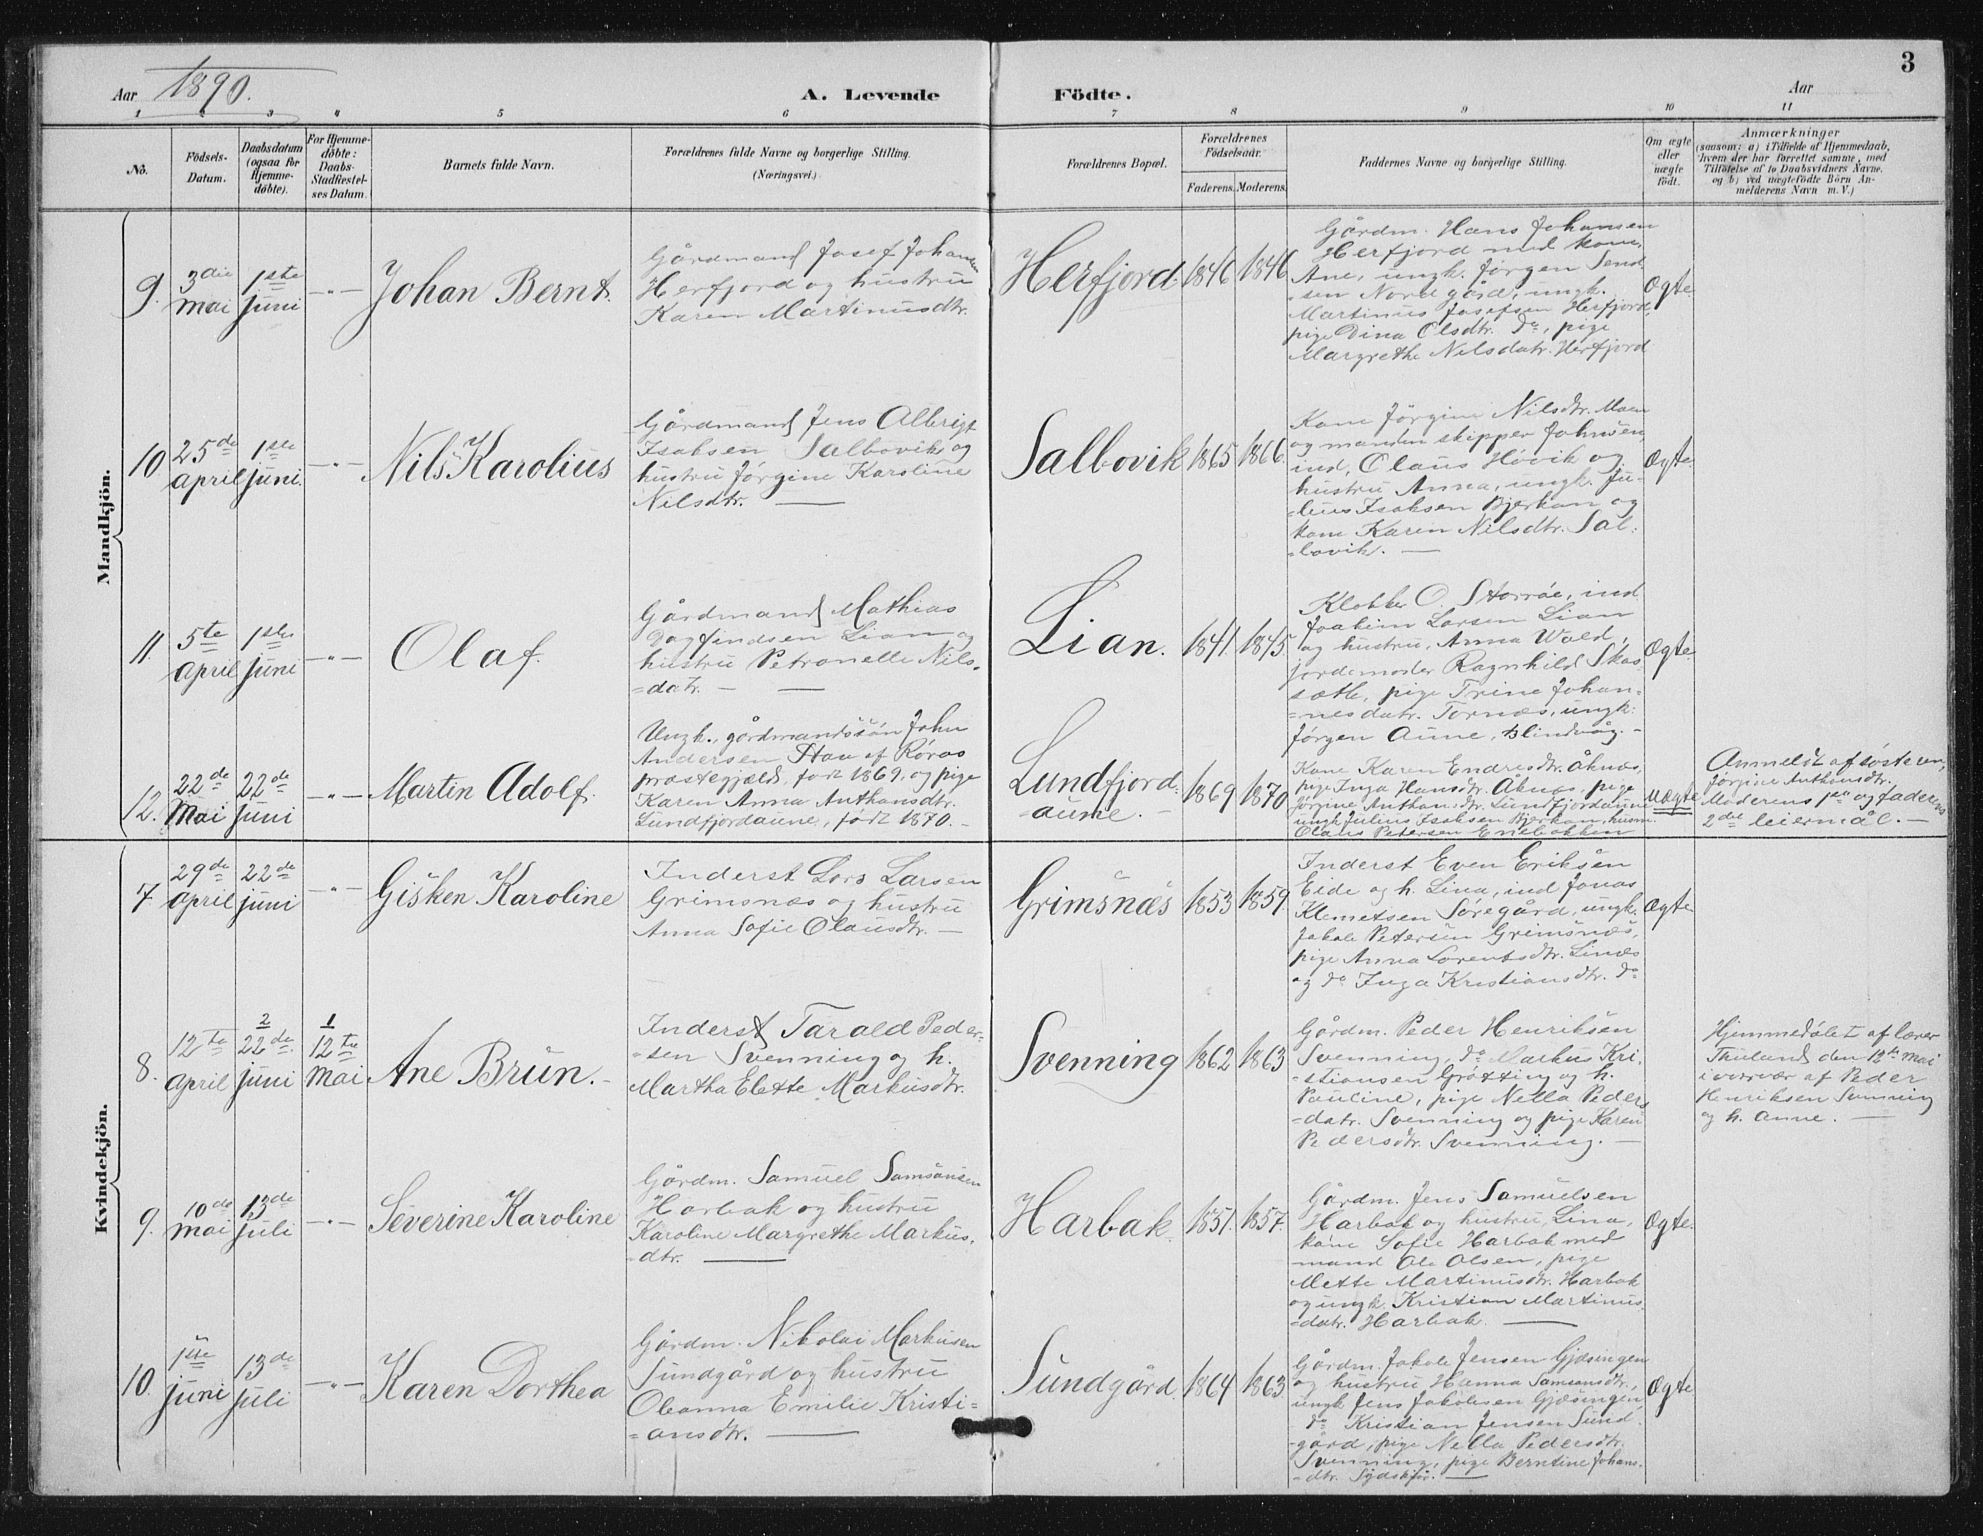 3
Aar 1890.
A. Levende Födte.
Aar
1 2 3 4 5 6 7 8 9 10 11
No.
Födsels-
Datum.
Daabsdatum
(ogsaa for
Hjemme-
döbte).
For Hjemme-
döbte:
Daabs-
Stadfæstel-
ses Datum.
Barnets fulde Navn.
Forældrenes fulde Navne og borgerlige Stilling.
(Næringsvei.)
Forældrenes Bopæl.
Forældrenes
Födselsaar.
Faderens.
Moderens.
Faddernes Navne og borgerlige Stilling.
Om ægte
eller
uægte
födt.
Anmærkninger
(saasom: a) i Tilfælde af Hjemmedaab,
hvem der har forrettet samme, med
Tilföielse af to Daabsvidners Navne,
og b) ved uægtefödte Börn An-
melderens Navn m. V.)
Mandkjön.
9.
3die
mai
1ste
juni
-"-
Johan Bernt.
Gårdmand Josef Johansen
Herfjord og hustru
Karen Martinusdtr.
Herfjord.
1846
1846
Gårdm. Hans Johansen
Herfjord med kone
Ane, ungk. Jørgen Send
sen Nordgård, ungk.
Martinus Josefsen Herfjord,
pige Dina Olsdtr. do, pige
Margrethe Nilsdatr. Herfjord
Ægte
10
25de
april
1ste
juni.
-"-
Nils Karolius
Gårdmand Jens Albrigt
Isaksen Salbovik og
hustru Jørgine Karoline
Nilsdtr. —
Salbovik
1865
1866.
Kone Jørgine Nilsdtr. Moen
og manden skipper Johnsen,
ind. Olaus Høvik og
hustru Anna, ungk. Ju-
-lius Isaksen Bjerkan og
kone Karen Nilsdtr. Sal-
-bovik. —
Ægte
11.
5te
april
1ste
juni
-"-
Olaf.
Gårdmand Mathias
Dagfindsen Lian og
hustru Petronelle Nils-
=datr. — —
Lian.
1841.
1845.
Klokker O Storrøe, ind
Joakim Larsen Lian
og hustru, Anna Wold,
jordemoder Ragnhild Skas
sæth, pige Trine Johan-
=nesdatr. Tornæs, ungk.
Jørgen Aune, Blindvåg. -
Ægte
12.
22de
Mai
22de
juni
-"-
Martin Adolf.
Ungk., gårdmandssøn John
Andersen Hau af Røros
præstegjeld, født 1869, og pige
Karen Anna Anthonsdtr.
Lundfjordaune, født 1870. -
Lundfjord-
aune. -
1869
1870
Kone Karen Endresdtr. Åknæs,
pige Inga Hansdtr. Åknæs, pige
Jørgine Anthonsdtr. Lundfjordaune
ungk Julius Isaksen Bjerkan, husm.
Olaus Petersen Enebakken
Uægte
Anmeldt af søsteren,
Jørgine Anthonsdtr.
Moderens 1ste og faderens
2det leiermål. —
Kvindekjön.
7
29de
april
22de
juni
-"-
Gisken Karoline
Inderst Lars Larsen
Grimsnæs og hustru
Anna Sofie Olausdtr. —
Grimsnæs
1853
1859.
Inderst Even Eriksen
Eide og h. Lina, ind Jonas
Klemetsen Søregård, ungk.
Jakob Petersen Grimsnæs,
pige Anna Lorentsdtr. Linæs
og do Inga Kristiansdtr. do
Ægte
8.
12te
april
2
22de
juni
1
12te
mai
Ane Brun. -
Inderst Tarald Peder-
-sen Svenning og h.
Martha Elette Markusdtr.
Svenning
1862
1863
Gårdm. Peder Henriksen
Svenning, do Markus Kri-
-stiansen Grøtting og h.
Pauline, pige Nella Peders
=datr. Svenning og pige Karen
Pedersdtr. Svenning. —
Hjemmedøbt af lærer
Thuland den 12te mai
i overvær af Peder
Henriksen Svenning
og h. Anne. —
9.
10de
mai
13de
juli
-"-
Severine Karoline
Gårdm. Samuel Samsonsen
Harbak og hustru
Karoline Margrethe Markus.
-dtr. —
Harbak.
1851.
1857.
Gårdm. Jens Samuelsen
Harbak og hustru, Lina,
kone Sofie Harbak med
mand Ole Olsen, pige
Mette Martinusdtr. Harbak
og ungk. Kristian Martinus
=datr. Harbak. —
Ægte.
10.
1ste
juni
13de
juli
-"-
Karen Dorthea
Gårdm. Nikolai Markusen
Sundgård og hustru
Oleanna Emilie Kristi-
=ansdtr. —
Sundgård.
1864
1863
Gårdm. Jakob Jensen Gjæsingen
og hustru Hanna Samsonsdtr.,
ungk Jens Jakobsen Gjæsingen,
do Kristian Jensen Sund-
-gård, pige Nella Pedersdtr.
Svenning, pige Berntine Johans-
-dtr.
Ægte